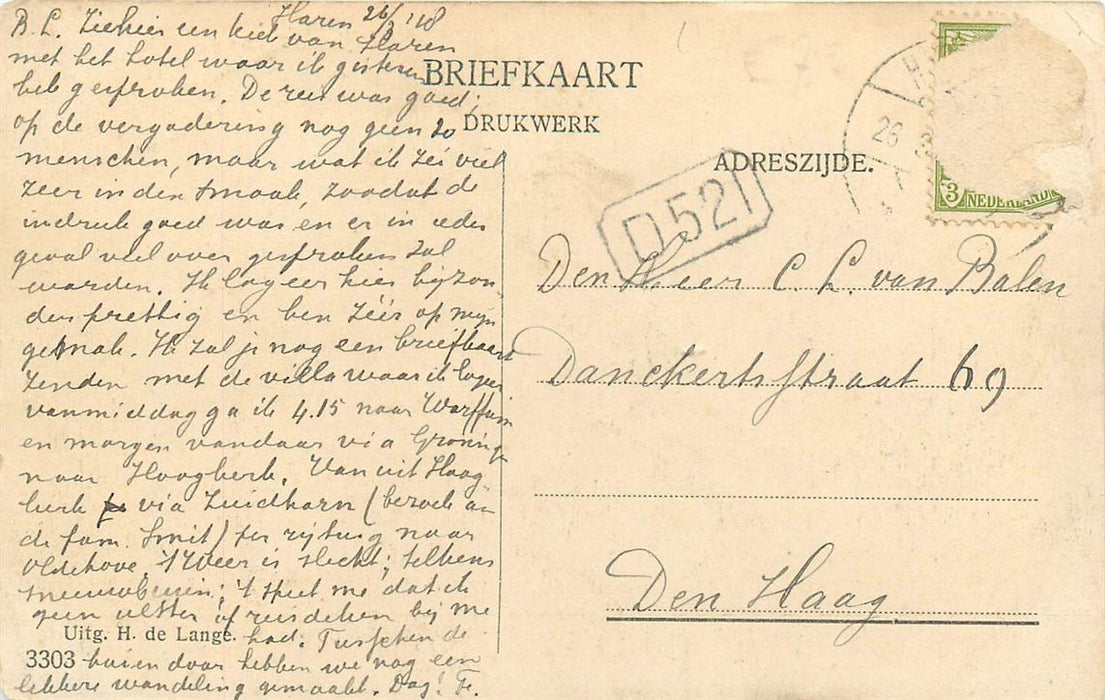 Haren 26/3 '18
B. L. Ziehier een kiek van Haren
met het hotel waar ik gisteren
heb gesproken. De reis was goed,
op de vergadering nog geen 20
menschen, maar wat ik zei viel
zeer in den smaak, zoodat de
indruk goed was en er in ieder
geval veel over gesproken zal
worden. Ik logeer hier bijzon-
der prettig en ben zéér op mijn
gemak. Ik zal je nog een briefkaart
zenden met de villa waar ik logeer
vanmiddag ga ik 4.15 naar Warffum
en morgen vandaar via Groningen
naar Hoogkerk. Vanuit Hoog-
kerk via Zuidhorn (bezoek aan
de fam. Smit) per rijtuig naar
Oldehove. 't Weer is slecht; telkens
sneeuwbuien; 't spijt me dat ik
geen ulster of reisdeken bij me
had. Tusschen de
buien door hebben we nog een
lekkere wandeling gemaakt. Dag! Fr.
Uitg. H. de Lange.
3303
BRIEFKAART
DRUKWERK
ADRESZIJDE.
D521
26 3
3 NEDERLAND
Den Heer C. L. van Balen
Danckertsstraat 69
Den Haag